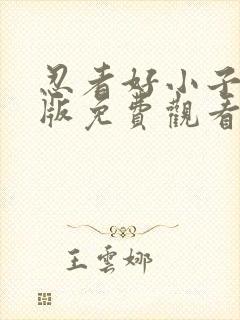 忍者好小子
版免費觀看
王雲娜